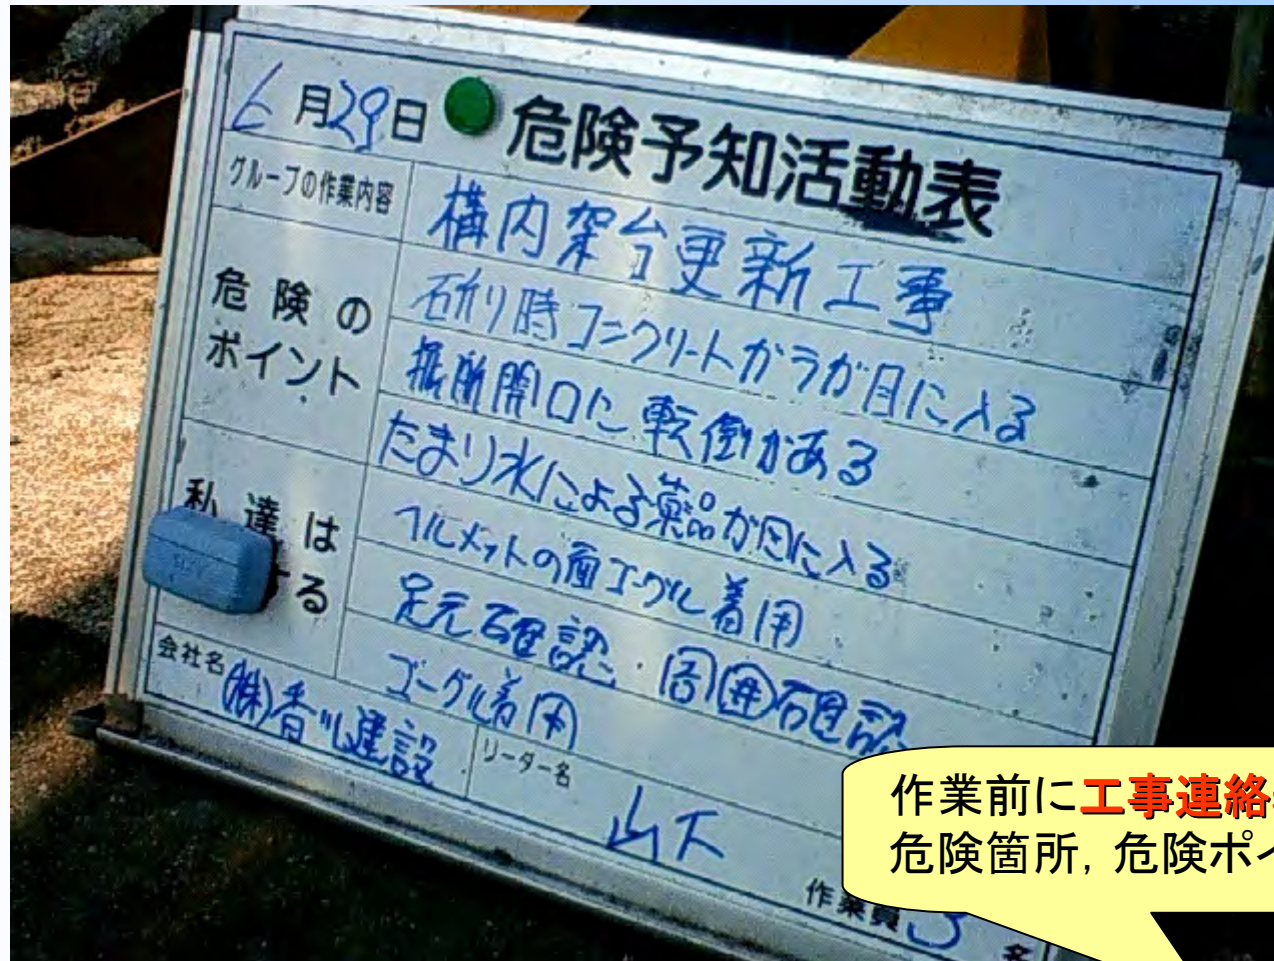 6月29日 危険予知活動表
グループの作業内容 構内架台更新工事
危険のポイント
斫り時コンクリートガラが目に入る
掘削開口に転倒がある
たまり水による薬品が目に入る
私達は する
ヘルメットの ゴーグル着用
足元確認・周囲確認
ゴーグル着用
会社名 (株)香川建設
リーダー名 山下
作業員 名
作業前に工事連絡
危険箇所，危険ポイ